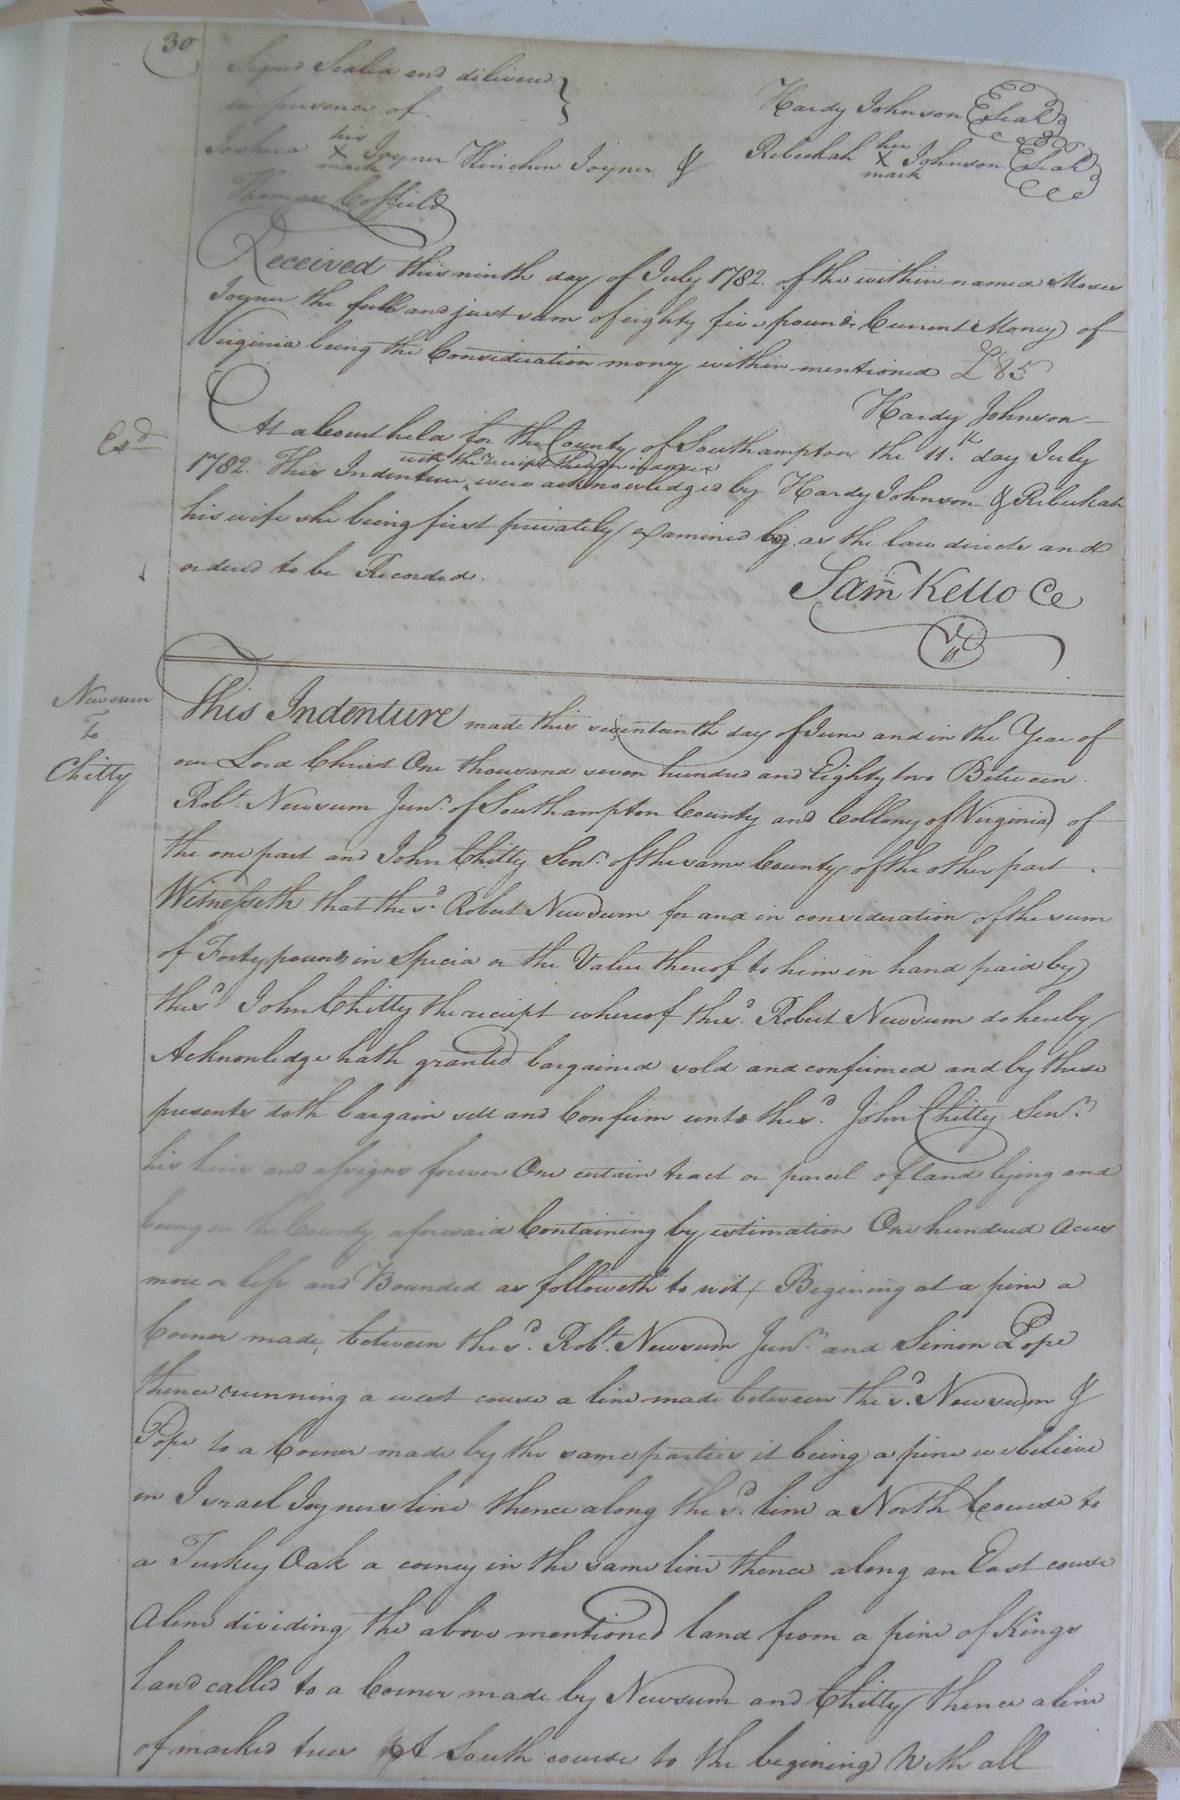 30
Signed Sealed and delivered
in presence of
Hardy Johnson Seal
his
Joshua X Joyner Hinchin Joyner &
mark
her
Rebeckah X Johnson Seal
mark
Thomas Coffield
Received this ninth day of July 1782. of the within named Moses
Joyner the full and just sum of eighty five pounds Current Money of
Virginia being the Consideration money within mentioned £85
Hardy Johnson
Exd
At a Court held for the County of Southampton the 11th day July
with the receipt thereon indorsed
1782. This Indenture were acknowledged by Hardy Johnson & Rebeckah
his wife she being first privately examined as the law directs and
ordered to be Recorded.
Saml Kello CC
Newsum
To
Chitty
This Indenture made this seventeenth day of June and in the Year of
our Lord Christ One thousand seven hundred and Eighty two Between
Robt. Newsum Junr. of Southampton County and Collony of Virginia of
the one part and John Chitty Senr. of the same County of the other part.
Witnesseth that the sd. Robert Newsum for and in consideration of the sum
of Forty pounds in Specia or the Value thereof to him in hand paid by
the sd. John Chitty the receipt whereof the sd. Robert Newsum do hereby
Acknowledge hath granted bargained sold and confirmed and by these
presents doth bargain sell and Confirm unto the sd. John Chitty Senr.
his heirs and assigns forever One certain tract or parcel of land lying and
being in the County aforesaid Containing by estimation One hundred acres
more or less and Bounded as followeth to wit, Begining at a pine a
Corner made, between the sd. Robt. Newsum Junr. and Simon Pope
thence running a west course a line made between the sd. Newsum &
Pope to a Corner made by the same parties it being a pine we believe
in Israel Joyners line thence along the sd. line a North Course to
a Turkey Oak a corney in the same line thence along an East course
A line dividing the above mentioned land from a pine of Kings
land called to a Corner made by Newsum and Chitty thence a line
of marked trees A South course to the begining With all